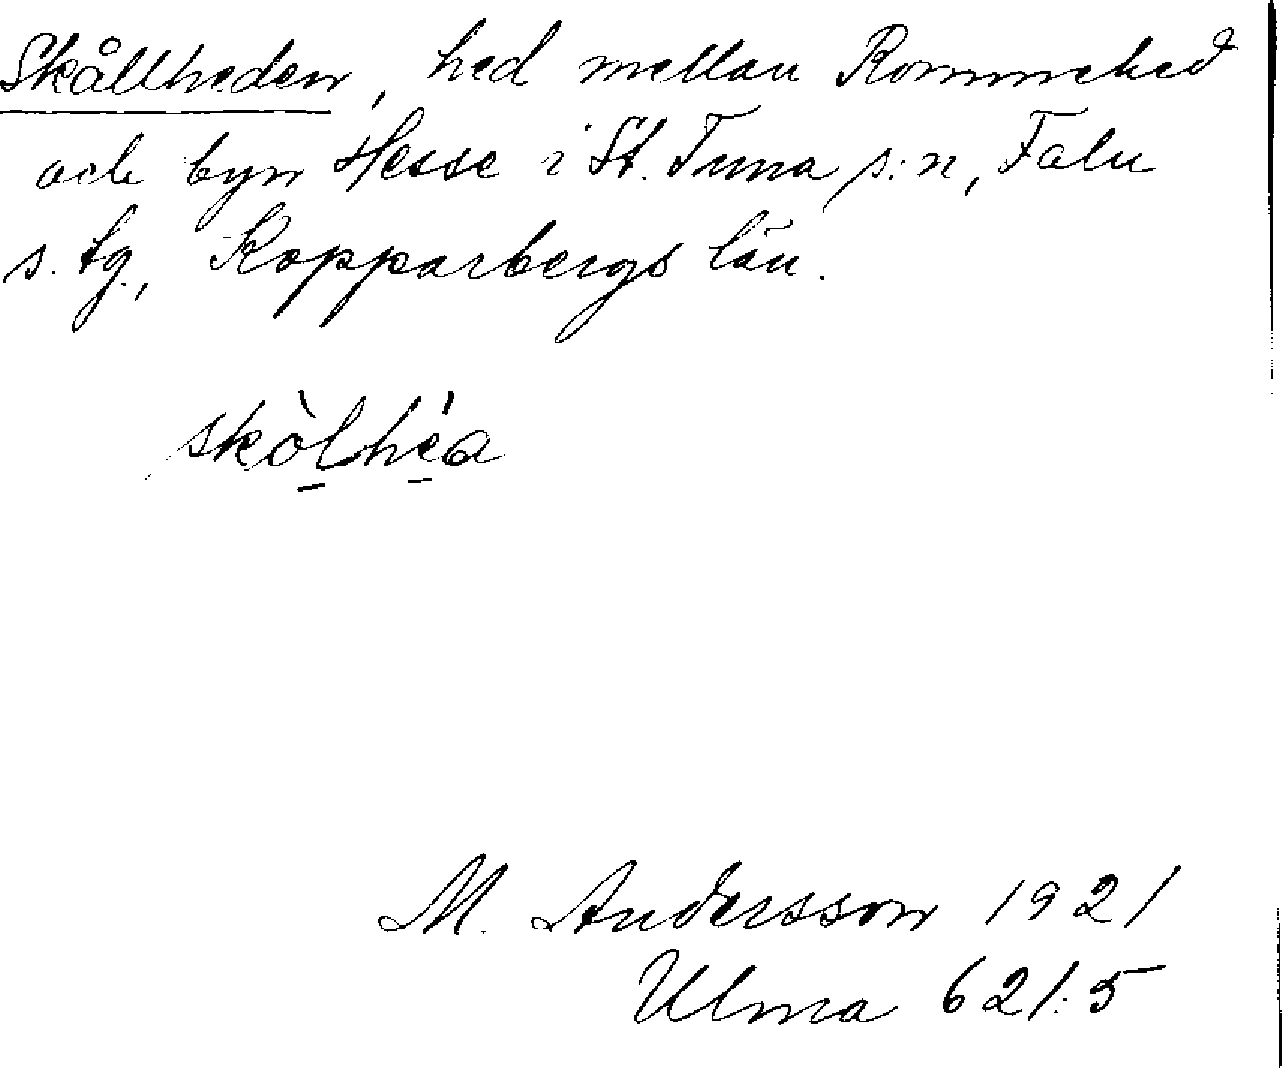 Skållheden, hed mellan Rommehed
och byn Hesse i St. Tuna s:n, Falu
s. tg., Kopparbergs län.
skò̱lhé̱a
M. Andersson 1921
Ulma 621:5